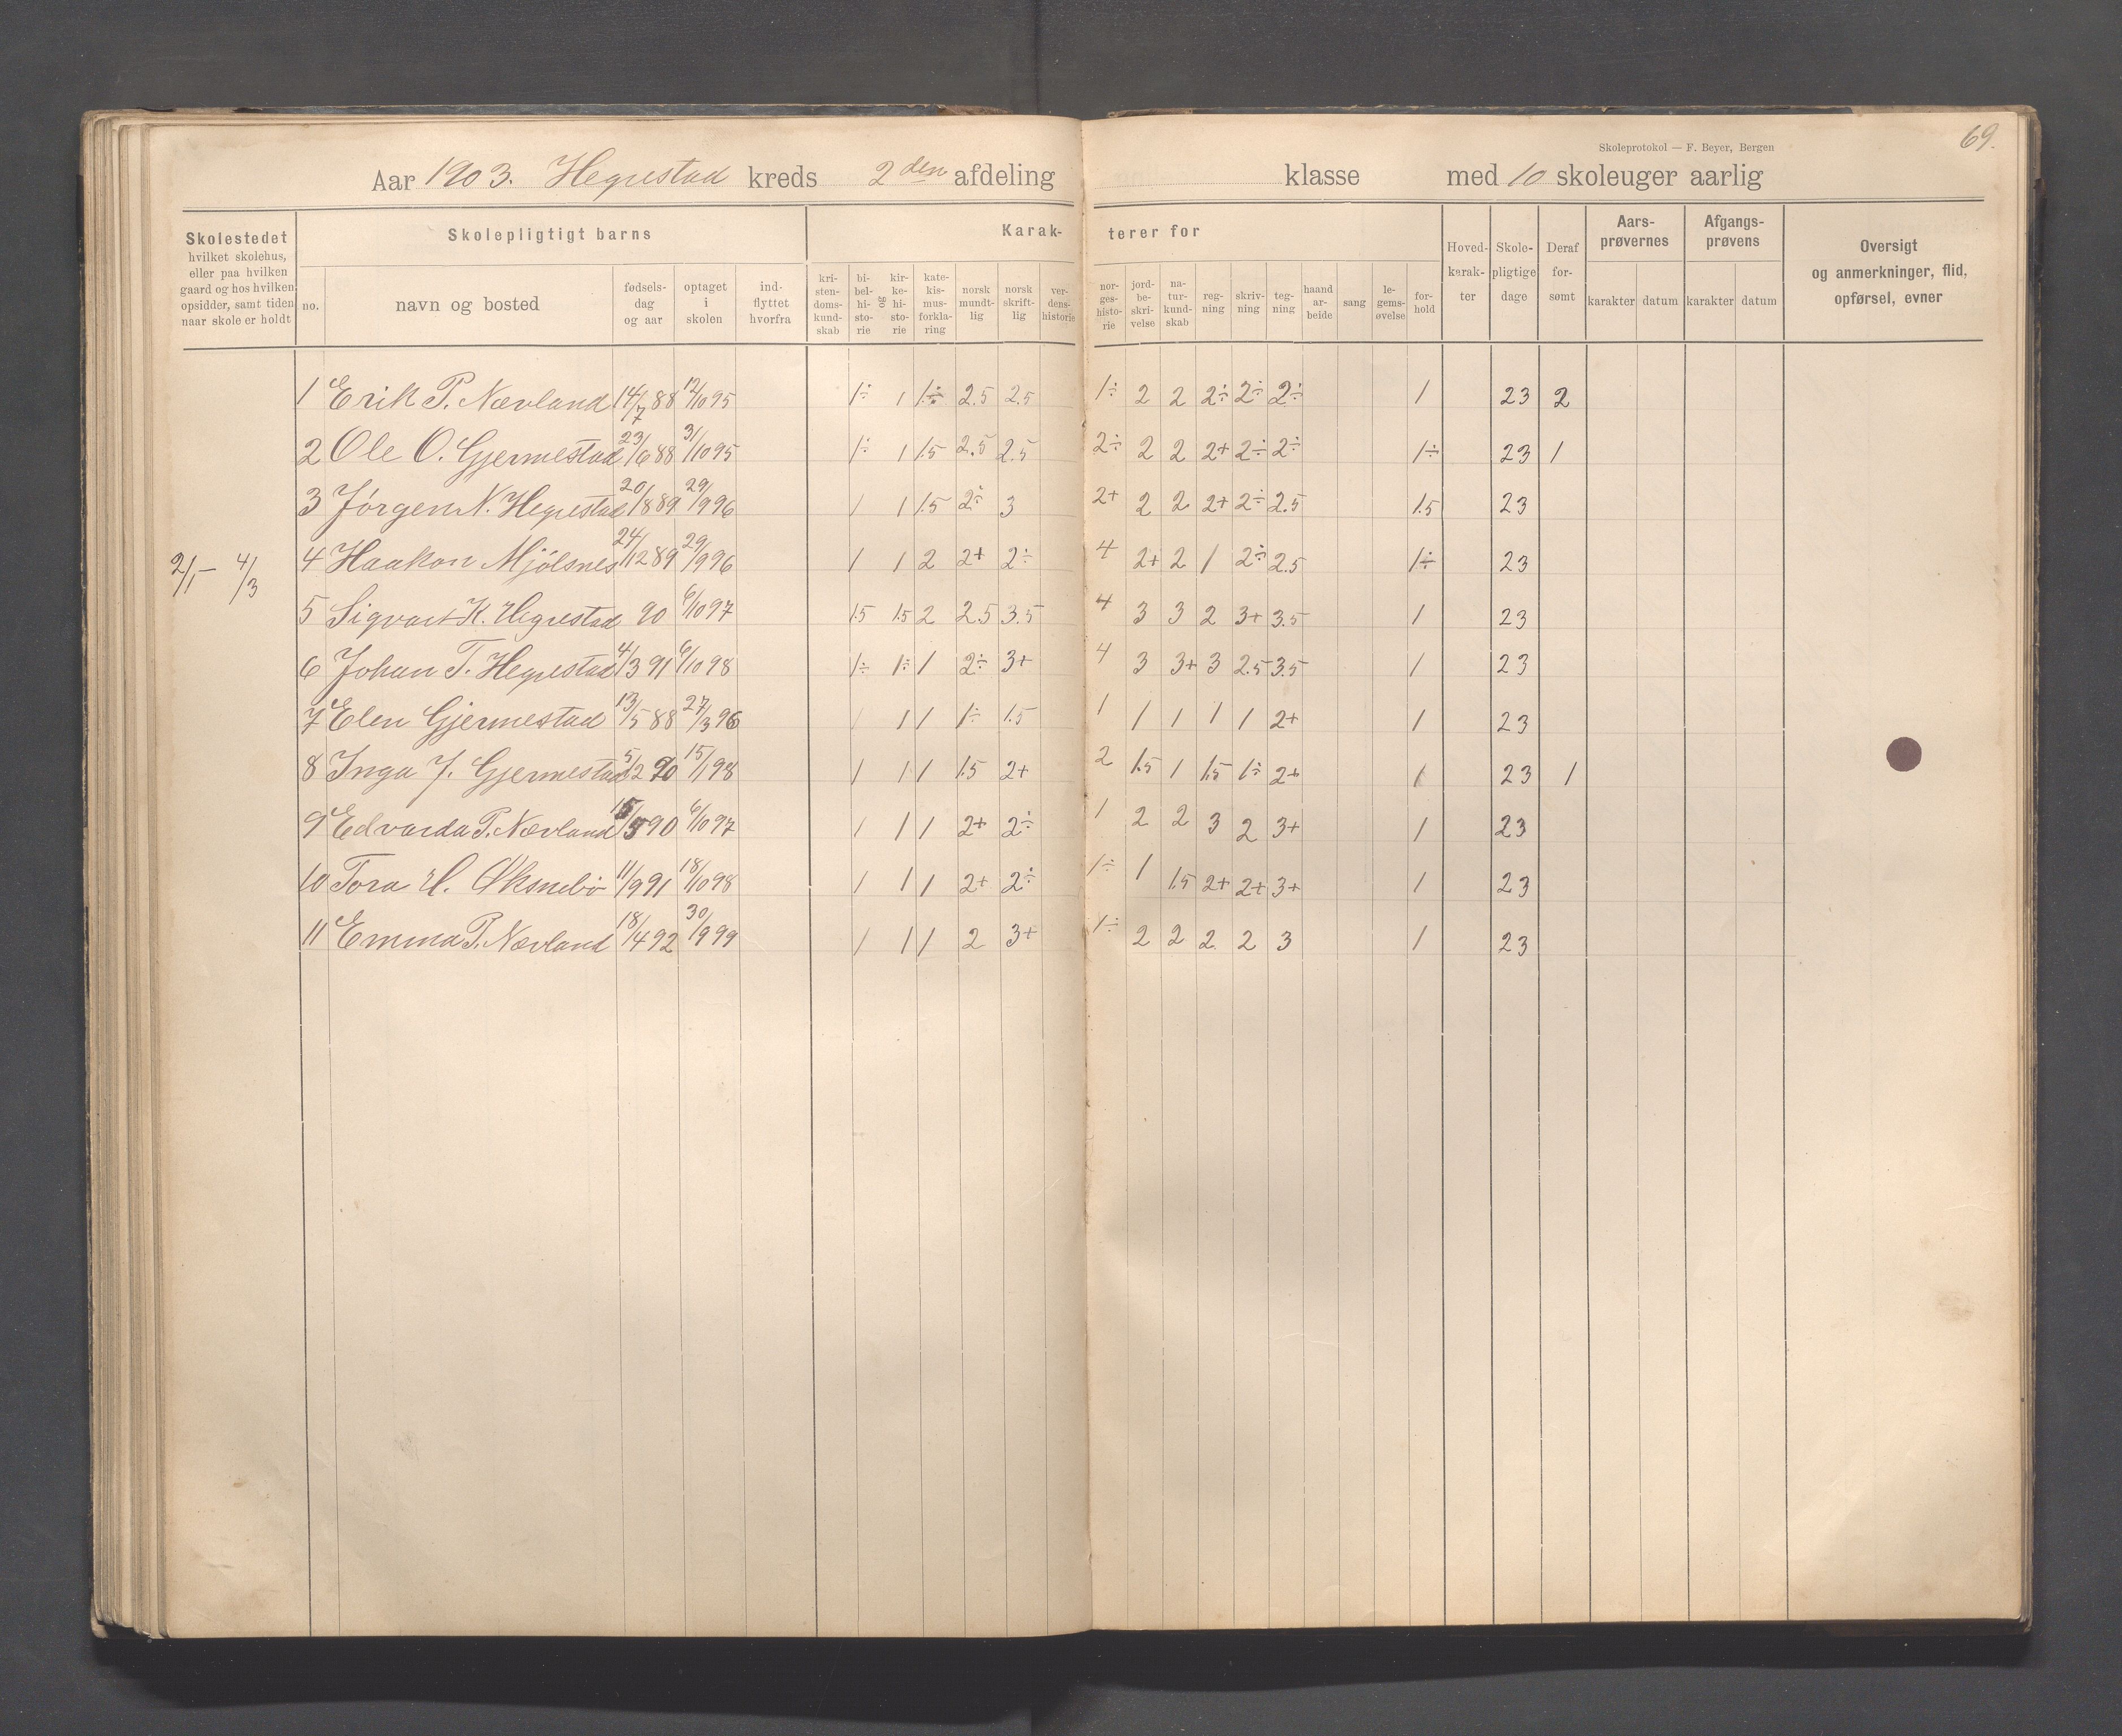 69.
Skoleprotokol — F. Beyer, Bergen
Aar 1903. Hegrestad kreds 2den afdeling klasse med 10 skoleuger aarlig
Skolestedet hvilket skolehus, eller paa hvilken gaard og hos hvilken opsidder, samt tiden naar skole er holdt
Skolepligtigt barns
Karakterer for
no. navn og bosted fødselsdag og aar optaget i skolen indflyttet hvorfra
kristendomskundskab bibelhistorie og kirkehistorie katekismusforklaring norsk mundtlig norsk skriftlig verdenshistorie
norgeshistorie jordbeskrivelse naturkundskab regning skrivning tegning haandarbeide sang legemsøvelse forhold
Hovedkarakter Skolepligtige dage Deraf forsømt
Aarsprøvernes karakter datum
Afgangsprøvens karakter datum
Oversigt og anmerkninger, flid, opførsel, evner
1 Erik P. Nævland 14/7 88 12/10 95 1÷ 1 1÷ 2.5 2.5 1÷ 2 2 2÷ 2÷ 2÷ 1 23 2
2 Ole O. Gjermestad 23/6 88 31/10 95 1÷ 1 1.5 2.5 2.5 2÷ 2 2 2+ 2÷ 2÷ 1÷ 23 1
3 Jörgen N. Hegrestad 20/8 89 29/9 96 1 1 1.5 2÷ 3 2+ 2 2 2+ 2÷ 2.5 1.5 23
2/1 – 4/3
4 Haakon Mjölsnes 24/12 89 29/9 96 1 1 2 2+ 2÷ 4 2+ 2 1 2÷ 2.5 1÷ 23
5 Sigvart K. Hegrestad 90 6/10 97 1.5 1.5 2 2.5 3.5 4 3 3 2 3+ 3.5 1 23
6 Johan T. Hegrestad 4/3 91 6/10 98 1÷ 1÷ 1 2÷ 3+ 4 3 3+ 3 2.5 3.5 1 23
7 Elen Gjermestad 13/5 88 27/3 96 1 1 1 1÷ 1.5 1 1 1 1 1 2+ 1 23
8 Inga J. Gjermestad 5/12 90 15/1 98 1 1 1 1.5 2+ 2 1.5 1 1.5 1÷ 2+ 1 23 1
9 Edvarda P. Nævland 90 6/10 97 1 1 1 2+ 2÷ 1 2 2 3 2 3+ 1 23
10 Tora H. Øksnebö 11/9 91 18/10 98 1 1 1 2+ 2÷ 1÷ 1 1.5 2+ 2+ 3+ 1 23
11 Emma P. Nævland 18/4 92 30/9 99 1 1 1 2 3+ 1÷ 2 2 2 2 3 1 23